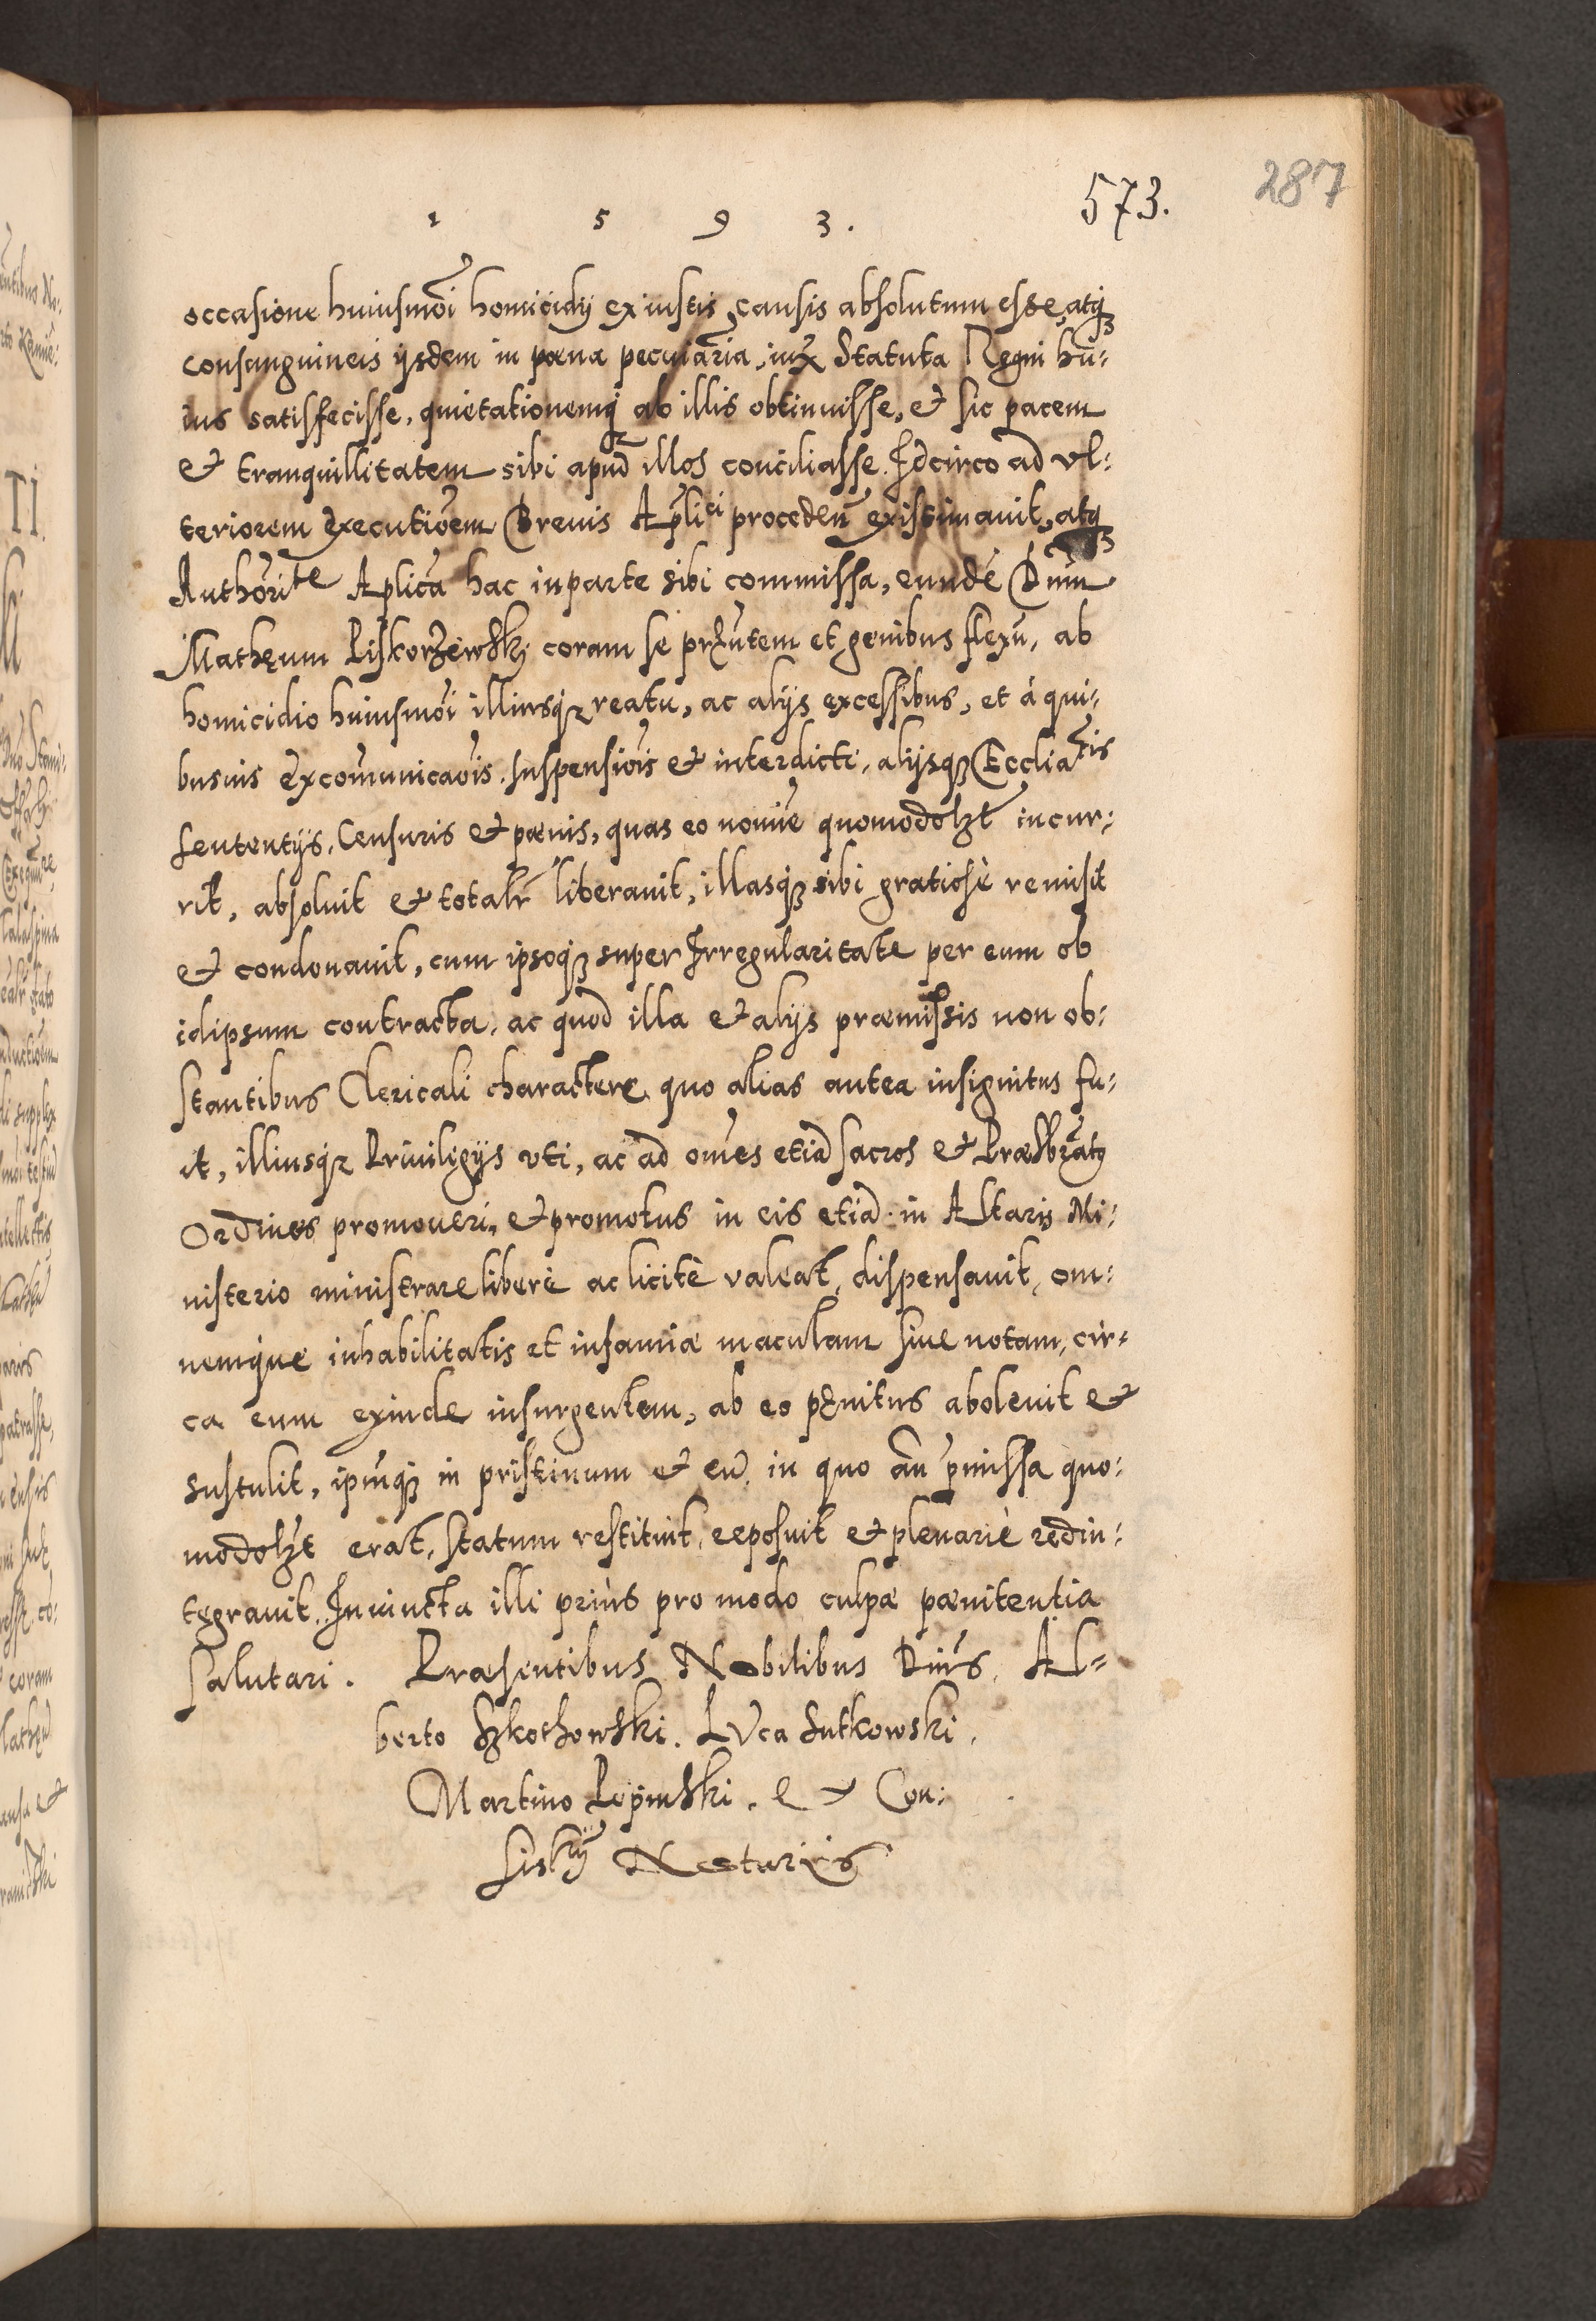 1 5 9 3. 573. 287
occasione huiusmōi homicidij ex iustis causis absolutum esse, atq3
consanguineis ijsdem in pœna pecuiaria, iux Statuta Regni hu:
ius satisfecisse, quietationemq3 ab illis obtinuisse, et sic pacem
et tranquillitatem sibi apud illos conciliasse. Idcirco ad vl:
teriorem executiōem Breuis Aplici proceden̄ existimauit, atq3
Authōrite Aplica hac in parte sibi commissa, eundē Dnūm
Mathęum Piskorzewskj coram se prñtem et genibus flexū, ab
homicidio huiusmōi illiusq3 reatu, ac alijs excessibus, et á qui:
busuis excōmunicaōis, suspensiōis et interdicti, alijsq3 Eccliatis
sententijs, Censuris et pœnis, quas eo nomīe quomodolzt incur:
rit, absoluit et totalr̄ liberauit, illasq3 sibi gratiosè remisit
et condonauit, cum ipsoq3 super Irregularitate per eum ob
idipsum contracta, ac quod illa et alijs præmissis non ob:
stantibus Clericali charactere quo alias antea insignitus fu:
it, illiusq3 Priuilegijs vti, ac ad omēs etiā sacros et Præsbrāty
Ordines promoueri, et promotus in eis etiā in Altaris Mi:
nisterio ministrare liberè ac licitè valeat, dispensauit, om:
nemque inhabilitatis et infamiæ maculam siue notam, cir:
ca eum exinde insurgentem, ab eo penitus aboleuit et
sustulit, ipmq3 in pristinum et eū in quo añ pmissa quo:
modolzt erat, statum restituit, reposuit et plenariè redin:
tegrauit. Iniuncta illi priùs pro modo culpæ pœnitentia
salutari. Præsentibus Nobilibus Dnīs, Al=
berto Szkothowski. LVca Sutkowski,
Martino Lepinski. et Con:
sistrij Notarijs